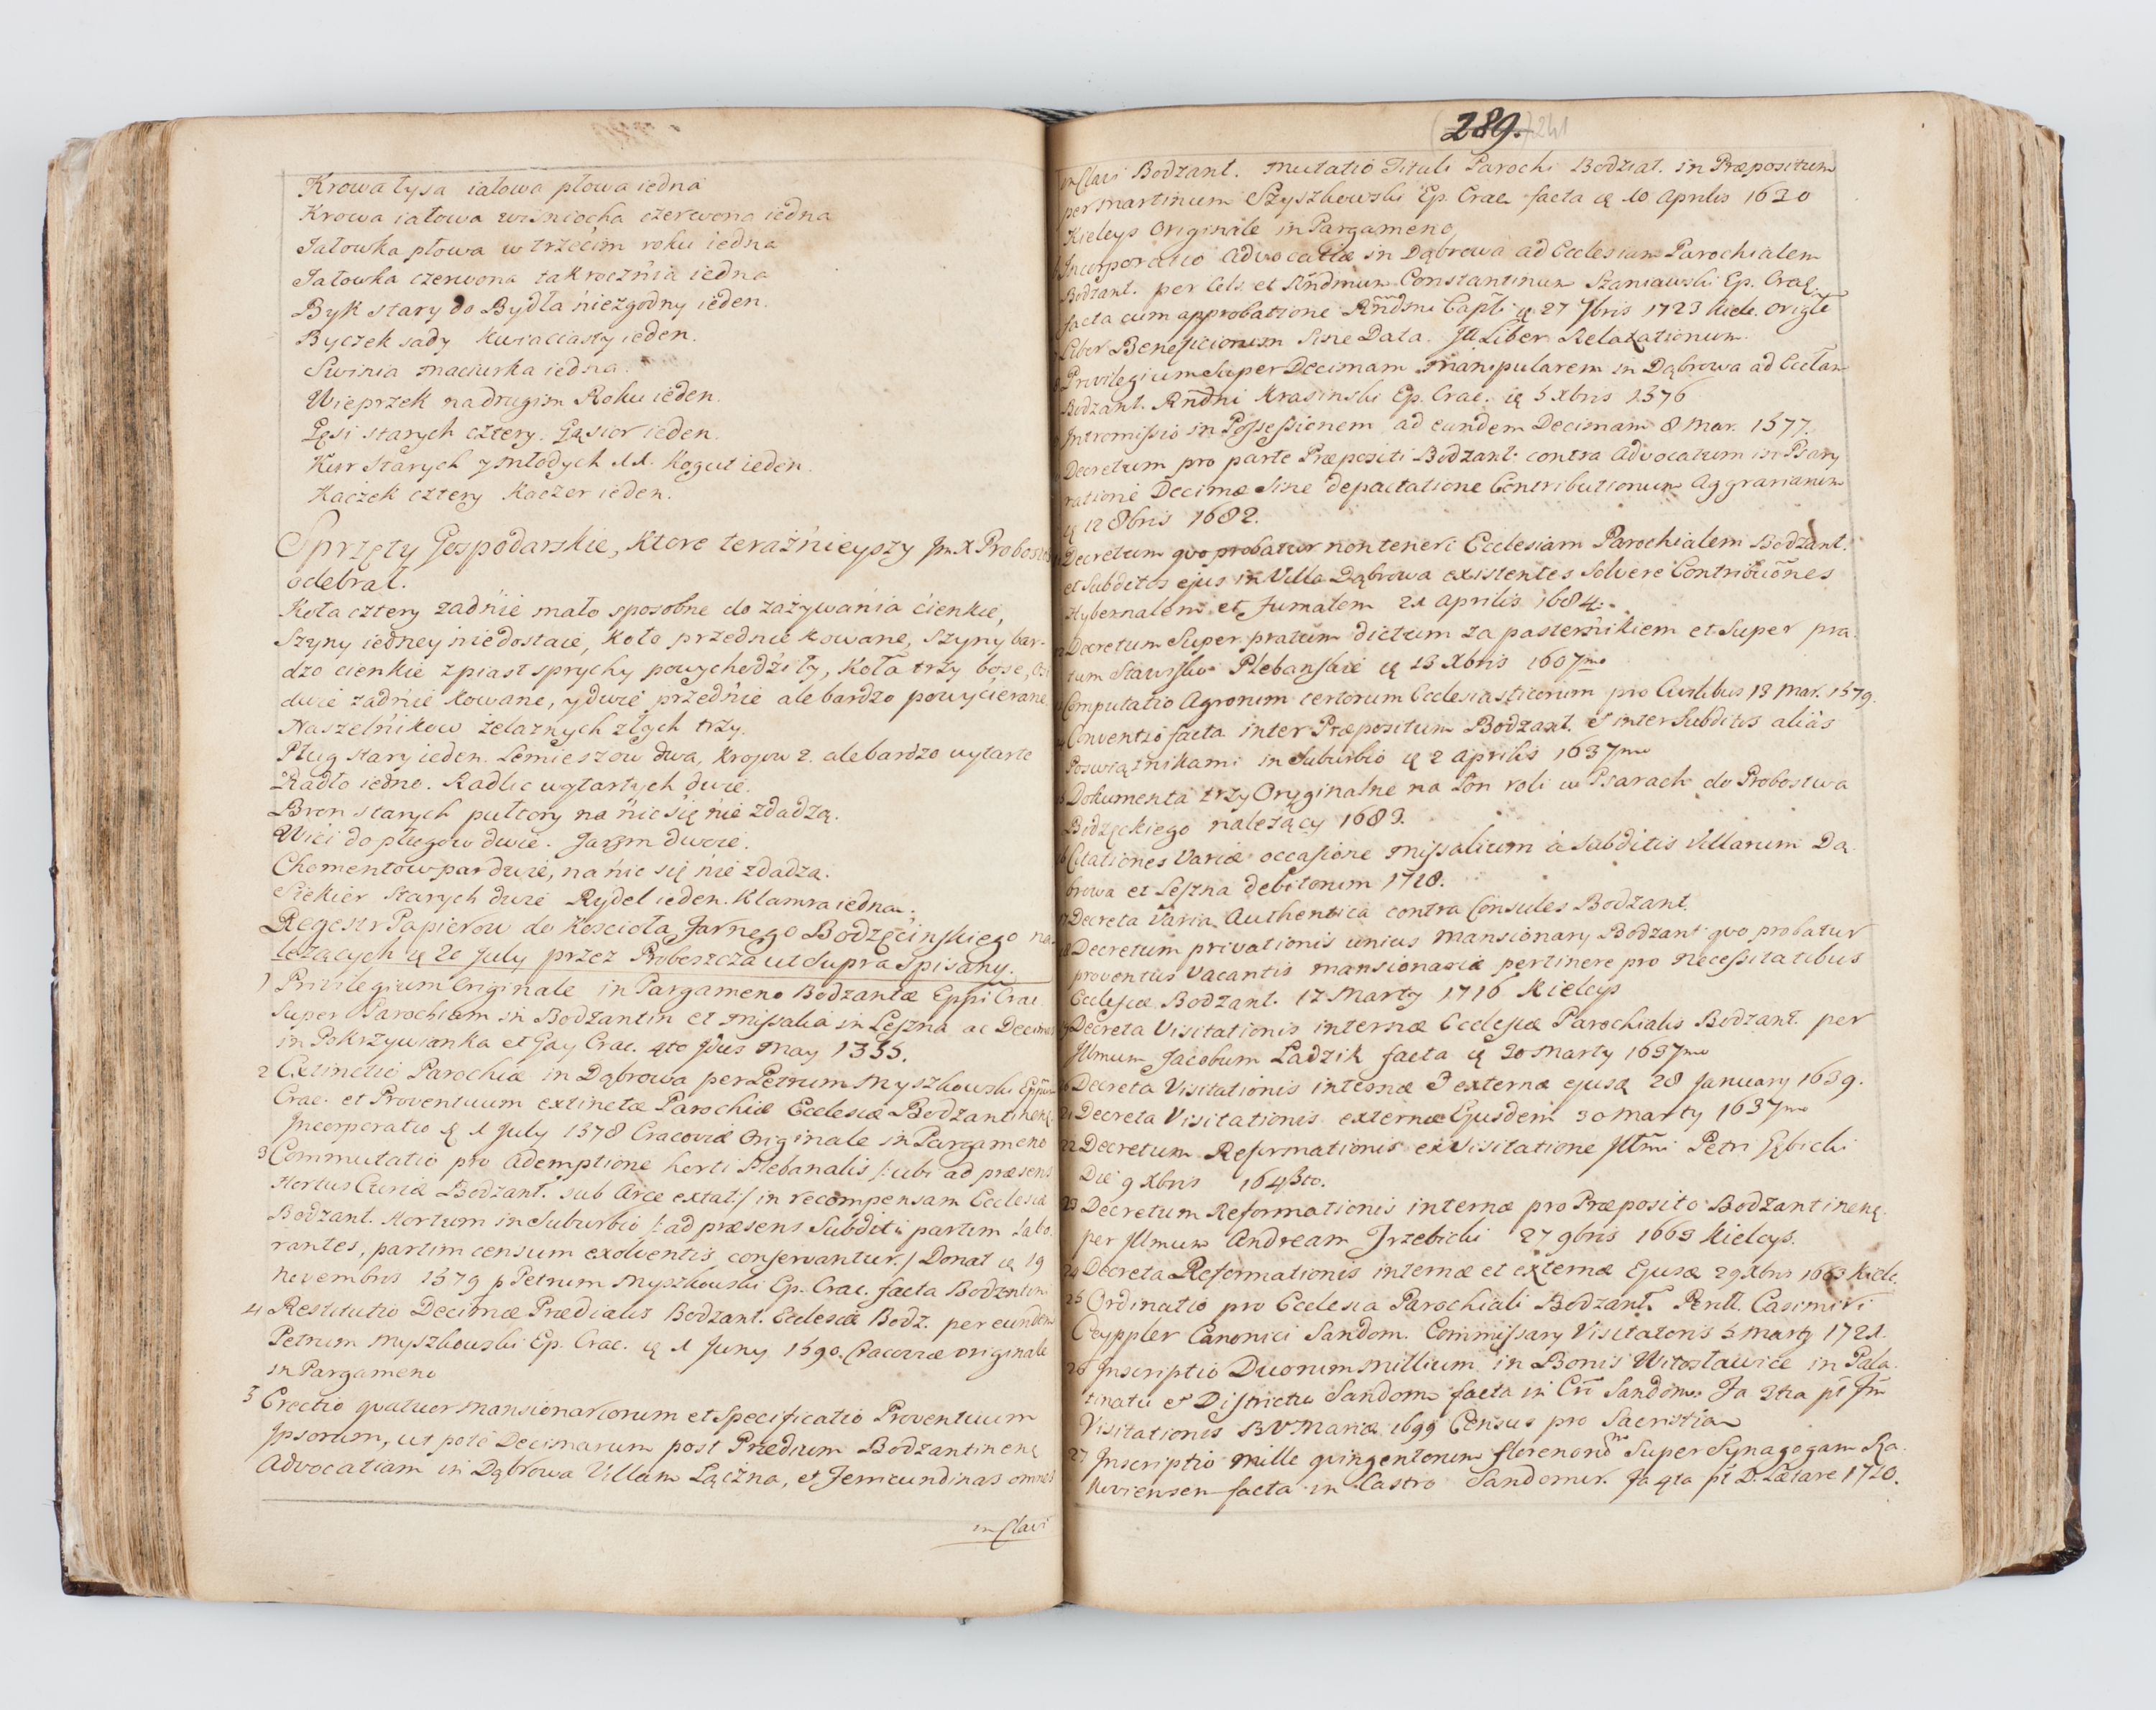 Krowa łysa iałowa płowa iedna
Krowa iałowa wiśniocha czerwona iedna
Jałowka płowa w trzecim roku iedna
Jałowka czerwona takrocznia iedna
Byk stary do Bydła niezgodny ieden.
Byczek sady kwiaciasty ieden.
Swinia maciurka iedna.
Wieprzek na drugim Roku ieden.
Gęsi starych cztery. Gąsior ieden.
Kur starych 7 młodych 11. Kogut ieden.
Kaczek cztery Kaczer ieden.
Sprzęty Gospodarskie, ktore teraźnieyszy Jm. X Probosz
odebrał.
Koła cztery zadnie mało sposobne do zażywania cienkie,
Szyny iedney niedostaie, koło przednie kowane, Szyny bar-
dzo cienkie z piast sprychy powychodziły, koła trzy bose, Osi
dwie zadnie kowane, y dwie przednie ale bardzo powycierane
Naszelnikow żelaznych złych trzy.
Pług stary ieden. Lemieszow dwa, krojow 2. ale bardzo wytarte
Radło iedno. Radlic wytartych dwie.
Bron starych pułtory na nic się nie zdadzą.
Wici do pługow dwie. Jarzm dwoie.
Chomentow par dwie, na nic się nie zdadzą.
Siekier starych dwie Rydel ieden. Klamra iedna.
Regestr Papierow do Koscioła Farnego Bodzęcinskiego na-
leżących 20 July przez Proboszcza ut supra Spisany.
1 Privilegium Originale in Pargameno Bodzantæ Eppi Crac.
Super Parochiam in Bodzantin et missalia in Leszna ac Decimas
in Pokrzywianka et Gay Crac. 4to Jdus May 1355.
2 Extinctio Parochiæ in Dąbrowa per Petrum Myszkowski Eppum
Crac. et Proventuum extinctæ Parochiæ Ecclesiæ Bodzantinenę
Incorporatio ę 1 July 1578 Cracoviæ Originale in Pargameno
3 Commutatio pro ademptione horti Plebanalis /: ubi ad præsens
Hortus Curiæ Bodzant. sub Arce extat :/ in recompensam Ecclesiæ
Bodzant. Hortum in Suburbio /: ad præsens Subditi partim labo-
rantes, partim censum exolventis conservantur :/ Donat ę 19
Novembris 1579 p Petrum Myszkowski Ep. Crac. facta Bodzentin.
4 Restitutio Decimæ Prædialis Bodzant. Ecclesiæ Bodz. per eundem
Petrum Myszkowski Ep. Crac. ę 1 Juny 1590. Cracoviæ originale
in Pargameno
5 Erectio quatuor mansionariorum et Specificatio Proventuum
Ipsorum, ut pote Decimarum post Prædium Bodzantinenę
Advocatiam in Dąbrowa Villam Łączna, et Jemiundinas omnes
in Clavi
289. 241
in Clavi Bodzant. mutatio Tituli Parochi Bodzat. in Præpositum
per Martinum Szyszkowski Ep. Crac. facta ę 10 Aprilis 1620
Kielcys Originale in Pargameno
Incorporatio Advocatiæ in Dąbrowa ad Ecclesiam Parochialem
Bodzant. per Cels. et Rndmum Constantinum Szaniawski Ep. Crac.
facta cum approbatione Rndmi Capli ę 27 7bris 1723 Kielc. origle
Liber Beneficiorum Sine Data. Liber Relaxationum.
Privilegium Super Decimam manipularem in Dąbrowa ad Ecclam
Bodzant. Rndni Krasinski Ep. Crac. ę 5 Xbris 1576
Intromissio in Possessionem ad eundem Decimam 8 Mar. 1577.
Decretum pro parte Præpositi Bodzant. contra Advocatum in Psary
ratione Decimæ Sine depactatione Contributionum Aggrarianum
ę 12 8bris 1682.
Decretum quo probatur non teneri Ecclesiam Parochialem Bodzant.
et Subditos ejus in Villa Dąbrowa existentes Solvere Contribuones
Hybernalem et Fumalem 21 Aprilis 1684.
Decretum Super pratum dictum za pasternikiem et Super pra-
tum Stawisko Plebanskie ę 13 Xbris 1607mo
Computatio Agrorum certorum Ecclesiasticorum pro Civilibus 13 Mar. 1579.
Conventio facta inter Præpositum Bodzant. et inter Subditos alias
Poswiąznikami in Suburbio ę 2 Aprilis 1637mo
Dokumenta trzy Oryginalne na Łon roli w Psarach do Probostwa
Bodzęckiego należący 1683.
Citationes Variæ occasione missalium à Subditis Villarum Dą-
browa et Leszna debitorum 1718.
17 Decreta Varia Authentica contra Consules Bodzant.
18 Decretum privationis unius Mansionary Bodzant quo probatur
proventus Vacantis mansionariæ pertinere pro necessitatibus
Ecclesiæ Bodzant. 17 Marty 1716 Kielcys
Decreta Visitationis internæ Ecclesiæ Parochialis Bodzant. per
Illmum Jacobum Zadzik facta ę 20 Marty 1637mo
Decreta Visitationis internæ et externæ ejusą 28 January 1639.
21 Decreta Visitationis externæ Ejusdem 30 Marty 1637mo
22 Decretum Reformationis ex Visitatione Illmi Petri Gębicki
Die 9 Xbris 1643to.
23 Decretum Reformationis internæ pro Præposito Bodzantinenę
per Illmum Andream Trzebicki 27 9bris 1663 Kielcys.
24 Decreta Reformationis internæ et externæ Ejusą 29 Xbris 1663 Kielc.
25 Ordinatio pro Ecclesia Parochiali Bodzant. Perill. Casimiri
Cryppler Canonici Sandom. Commissary Visitatoris 5 Marty 1721.
26 Inscriptio Duorum millium in Bonis Witosławice in Pala-
tinatu et Districtu Sandom. facta in Sandom. Fa 3tia pt Fm
Visitationis BV Mariæ 1699 Census pro Sacristia
27 Inscriptio mille quingentorum florenorū Super Synagogam Ra-
koviensem facta in Castro Sandomir. Fa 4ta pt D. Lætare 1720.